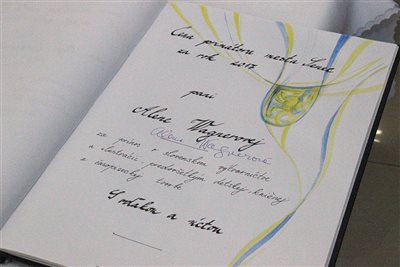 Cena primátora mesta Senec
za rok 2015
pani
Alene Wagnerovej
Alena Wagnerová
za prínos v slovenskom výtvarníctve
a ilustrácii, predovšetkým detskej knižnej
a časopiseckej tvorby
S vďakou a úctou